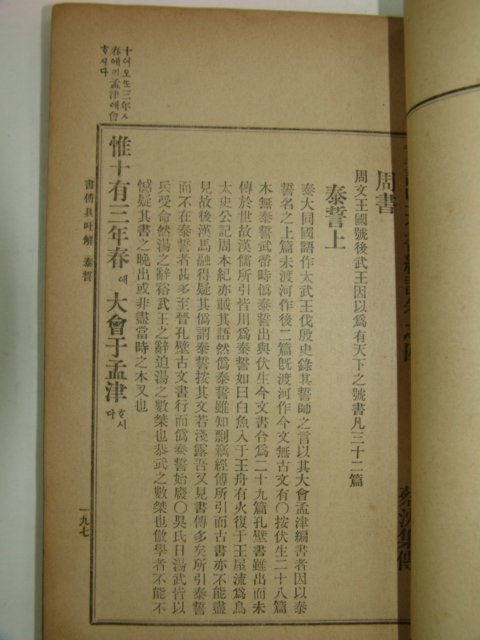 周書
周文王國號後武王因以爲有天下之號書凡三十二篇
泰誓上
泰大同國語作太武王伐殷史錄其誓師之言以其大會孟津編書者因以泰
誓名之上篇未渡河作後二篇旣渡河作今文無古文有○按伏生二十八篇
本無泰誓武帝時僞泰誓出與伏生今文書合爲二十九篇孔壁書雖出而未
傳於世故漢儒所引皆用僞泰誓如曰白魚入于王舟有火復于王屋流爲烏
太史公記周本紀亦載其語然僞泰誓雖知剽竊經傳所引而古書亦不能盡
見故後漢馬融得疑其僞謂泰誓按其文若淺露吾又見書傳多矣所引泰誓
而不在泰誓者甚多至晉孔壁古文書行而僞泰誓始廢○吳氏曰湯武皆以
兵受命然湯之辭裕武王之辭迫湯之數桀也恭武之數紂也傲學者不能不
憾疑其書之晩出或非盡當時之本文也
惟十有三年春애大會于孟津ᄒᆞ시다
十이오ᄯᅩ三年ㅅ
春에키孟津애會
ᄒᆞ시다
書傳具吐解 泰誓
一九七